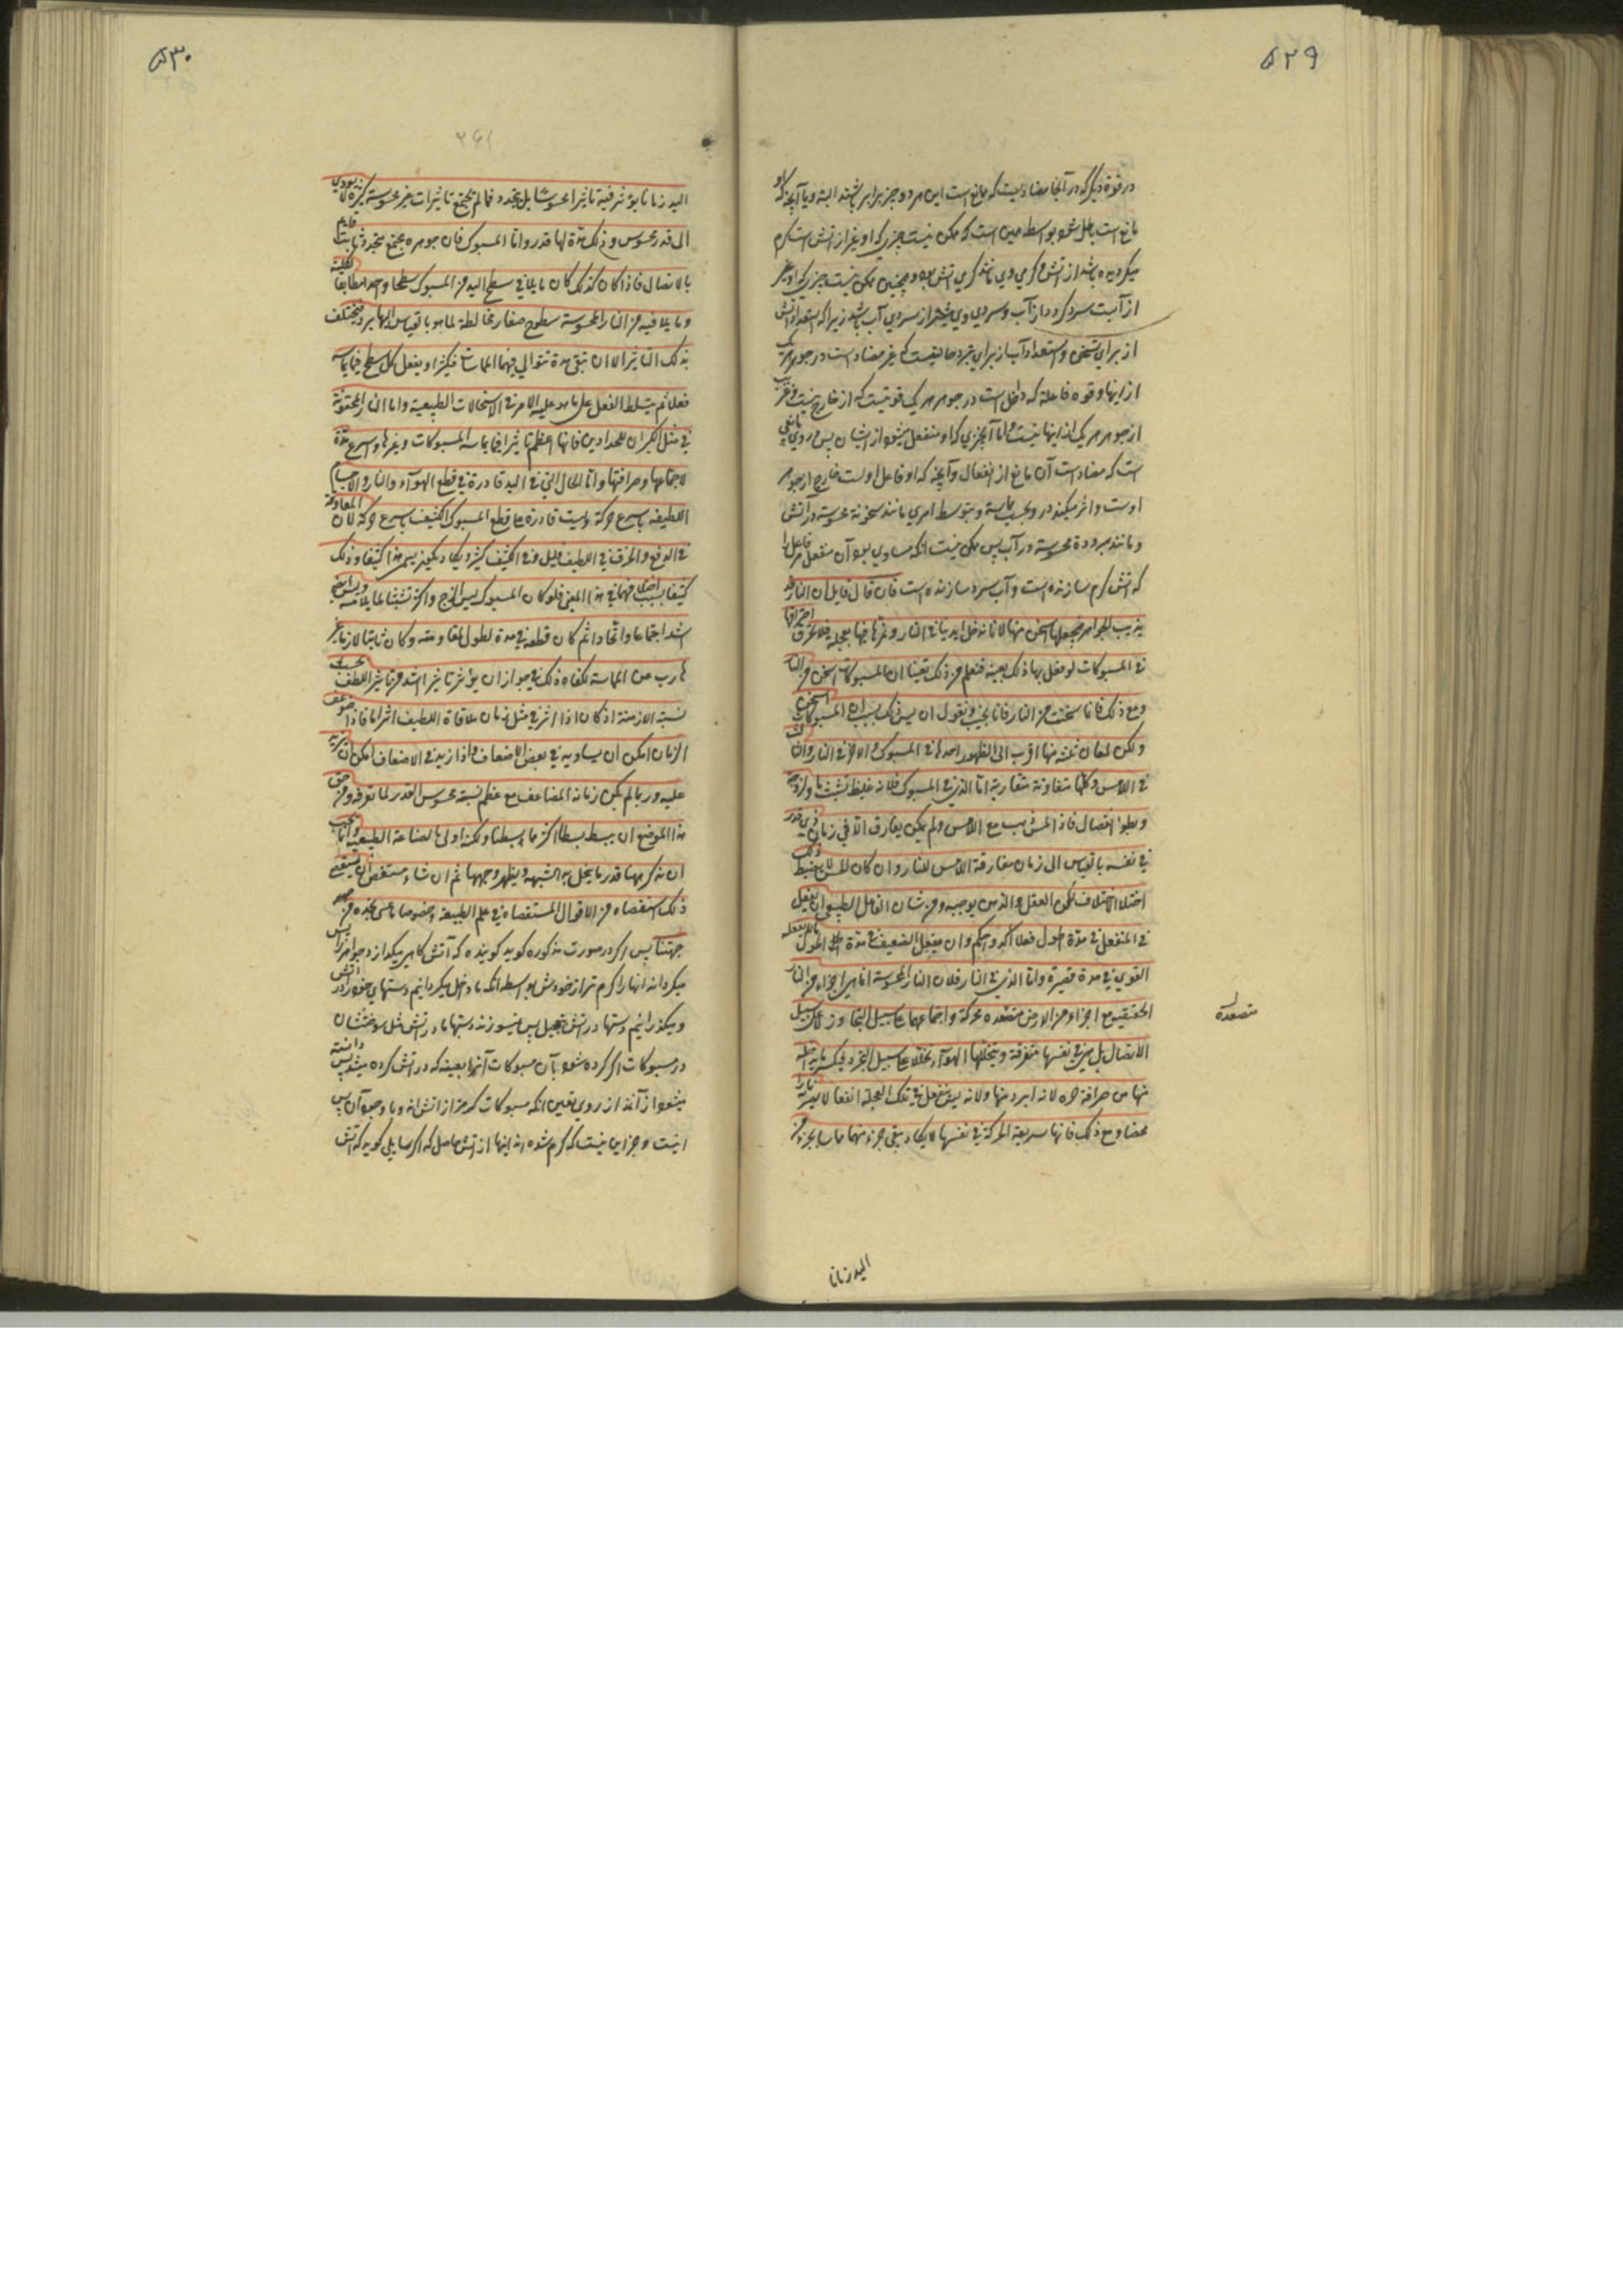 ۵۲۹
در قوة دیگر که در آنجا مضادیت که مانع است این هر دو چیز برابر باشند البته و یا آنچه که او
مانع است باطل شود بواسطه همین است که ممکن نیست چیزی که او غیر از آتش است گرم
میگردیده باشد از آتش و گرمی وی باشد گرمی آتش بود و همچنین ممکن نیست چیزی که او غیر
از آبست سرد گردد از آب و سردی وی بیشتر از سردی آب باشد زیرا که استعداد آتش
از برای تسخن و استعداد آب از برای تبرد حالتیست که غیر مضاد است در جوهر هر یک
از اینها و قوه فاعله که داخل است در جوهر هر یک قوتیست که از خارج نیست و غریب
از جوهر هر یک از اینها نیست و اما آنچیزی که او منفعل میشود از ایشان پس در وی مانعی
است که مضاد است آن مانع از انفعال و آنچه که او فاعل اوست خارج از جوهر
اوست و اثر میکند در وی بحسب مماسة و بتوسط امری مانند سخونة محسوسه در آتش
و مانند برودة محسوسه در آب پس ممکن نیست آنکه مساوی بود آن منفعل مر فاعل را
که آتش گرم سازنده است و آب سرد سازنده است فان قال قایل ان النار قد
یذیب الجواهر فیجعلها اسخن منها لانا ندخل ایدینا فی النار و نمرها فیها بعجلة فلا تحرق احتراقها
فی المسبوکات لو فعل بها ذلک بعینه فنعلم من ذلک یقینا ان المسبوکات اسخن من النار
و مع ذلک فانما سخنت من النار فانا نجیب و نقول ان لیس ذلک بسبب ان المسبوکات اسخن
و لکن لمعان ثلثة منها اقرب الی الظهور احدها فی المسبوک و الاخر فی النار و الثالث
فی اللامس و کلها متعاونة متقاربة اما الذی فی المسبوک فلانه غلیظ تشبث ما و لزوجة
و بطؤ انفصال فاذا لمس شبث مع اللامس و لم یکن یفارق الا فی زمان ذی قدر
فی نفسه بالقیاس الی زمان مفارقة اللامس للنار و ان کان الحس لا یضبط ذلک
اختلاف لکن العقل و الذهن یوجبه و من شان الفاعل الطبیعی ان یفعل
فی المنفعل فی مدة اطول فعلا اکد و احکم و ان یفعل الضعیف فی مدة اطول ما لا یفعله
القوی فی مدة قصیرة و اما الذی فی النار فلان النار المحسوسة انما هی اجزاء من النار
الحقیقیة مع اجزاء من الارض متصعدة محرکة و اجتماعهما علی سبیل التجاوز لا علی سبیل
متصعدة
الاتصال بل هی فی نفسها متفرقة و یتخللها الهواء تخللا علی سبیل التجدد فیکسر ما یداخله
منها من صرافة حره لانه ابرد منها و لانه لیس ینفعل فی تلک العجلة انفعالا یصیر نارا
محضا و مع ذلک فانها سریعة الحرکة فی نفسها لا یکاد یبقی جزء منها مماسا بجزء من
الید زمانا
۵۳۰
۲۶۱
الید زمانا یؤثر فیه تاثیرا محسوسا بل یتجدد فما لم یجتمع تاثیرات غیر محسوسة کثیرة لا یودی
الی قدر محسوس و ذلک مدة لها قدر و اما المسبوک فان جوهره مجتمع متحد ثابت قایم
بالاتصال فاذا کان کذلک کان ما یلاقی سطح الید من المسبوک سطحا واحدا مطابقا لکلیته
و ما یلاقیه من النار المحسوسة سطوح صغار مخالطة لما هو بالقیاس الیها برد فیختلف
بذلک التاثیر الا ان تبقی مدة تتوالی فیها المماسات فیکثر او یفعل کل سطح فیما یماسه
فعلا ثم یتسلط الفعل علی ما هو علیه الامر فی الاستحالات الطبیعیة و اما النار المحقونة
فی مثل الکیران للحدادین فانها اعظم تاثیرا فیما یماسه المسبوکات و غیرها و اسرع مدة
لاجتماعها و صرافتها و اما الحال التی فی الید قادرة فی قطع الهواء و النار و الاجسام
اللطیفة باسرع حرکة و لیست قادرة علی قطع المسبوک الکثیف باسرع حرکة لان المعاوقة
فی الدفع و الخرق فی اللطیف قلیل و فی الکثیف کثیر و یکاد یکون یسمی هذا کثیفا و ذلک
کثیفا بسبب اختلافهما فی هذا المعنی فلو کان المسبوک لیس الزج و اکثر تشبثا بما یلامسه و لیس ایضا
اشد اجتماعا و اتحادا ثم کان قطعه فی مدة اطول لمقاومته و کان ثابتا لازما غیر
هارب من المماسة لکفاه ذلک فی جواز ان یؤثر تاثیرا اشد من تاثیر اللطف بحسب
نسبة الازمنة اذ کان اذا اثر فی مثل زمان ملاقاة اللطیف اثرا ما فاذا ضوعف
الزمان امکن ان یساویه فی بعض الاضعاف و اذا زید فی الاضعاف امکن ان یزید
علیه و ربما لم یکن زمانه المضاعف مع عظم نسبته محسوس القدر لما تعرفه و من حق
هذا الموضع ان یبسط بسطا اکثر مما بسطنا و لکنه اولی بالصناعة الطبیعیة و انما یجب
ان نذکر هیهنا قدر ما ینحل به الشبهة و یظهر وجهها ثم ان شاء مستقص ان یستقصی
ذلک استقصاه من الاقوال المستقصاه فی علم الطبیعة و خصوصا ما عسی یجده من جهتنا
جهتنا پس اگر در صورت مذکوره گوید گوینده که آتش گاهی میگدازد جواهر را پس
میگرداند آنها را گرم تر از خودش بواسطه آنکه ما داخل میگردانیم دستهای خود را در آتش
و میگذرانیم دستها در آتش بتعجیل پس نمیسوزند دستها ما در آتش مثل سوختنشان
در مسبوکات اگر کرده شود بآن مسبوکات آنرا بعینه که در آتش کرده میشد پس دانسته
میشود از آنند از روی یقین آنکه مسبوکات گرمتر از آتش اند و با وجود آن پس
اینست و جز این نیست که گرم شده اند اینها از آتش حاصل که اگر سایلی گوید که آتش